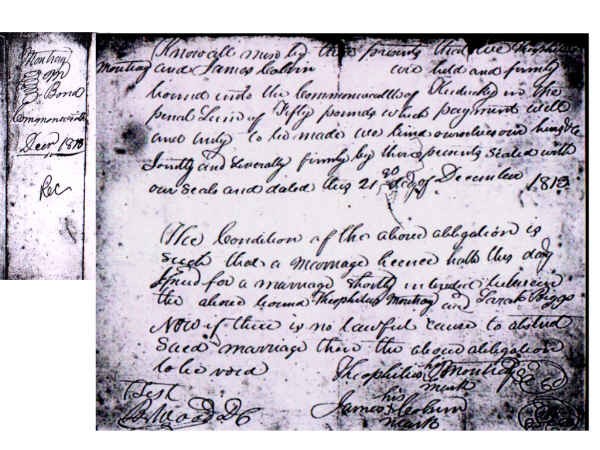 Montray
Bond
Commonwealth
Decr 1813
Rec
Know all men by these presents that we Theophilus
Montray and James Coburn are held and firmly
bound unto the Commonwealth of Kentucky in the
penal Sum of Fifty pounds which payment well
and truly to be made we bind ourselves our heirs &c
Jointly and Severally firmly by these presents Sealed with
our Seals and dated this 21 day of December 1813
The Condition of the above obligation is
Such that a marriage licence hath this day
Issued for a marriage Shortly intended between
the above bound Theophilus Montray and Sarah Biggs
Now if there is no lawful cause to obstruct
Said marriage then the above obligation
to be void Theophilus Montray
his
mark
Test James Coburn
Wood DC mark